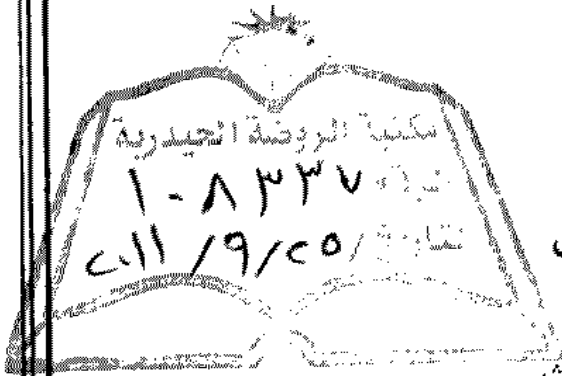 مكتبة الروضة الحيدرية
١٠٨٣٣٧
٢٠١١ /٩/٢٥